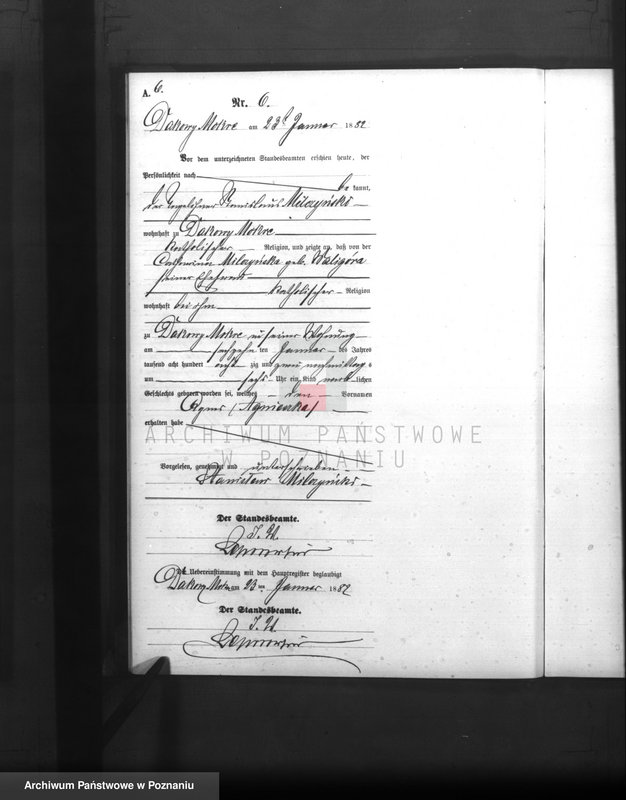 A. 6.
Nr. 6.
Dakowy Mokre am 23t Januar 1882
Vor dem unterzeichneten Standesbeamten erschien heute, der
Persönlichkeit nach be kannt,
der Tagelöhner Stanislaus Milczyński
wohnhaft zu Dakowy Mokre
katholischer Religion, und zeigte an, daß von der
Milczyńska geb. Waligóra
seiner Ehefrau
katholischer Religion
wohnhaft bei ihm
zu Dakowy Mokre in seiner Wohnung
am sechzehn ten Januar des Jahres
tausend acht hundert acht zig und zwei nachmittag s
um sechs Uhr ein Kind weib lichen
Geschlechts geboren worden sei, welches den Vornamen
Agnes (Agnieszka)
erhalten habe
ARCHIWUM PAŃSTWOWE
W POZNANIU
Vorgelesen, genehmigt und unterschrieben
Stanisław Milczyński
Der Standesbeamte.
I. V.
Die Uebereinstimmung mit dem Hauptregister beglaubigt
Dakowy Mokre am 23 ten Januar 1882
Der Standesbeamte.
I. V.
Archiwum Państwowe w Poznaniu